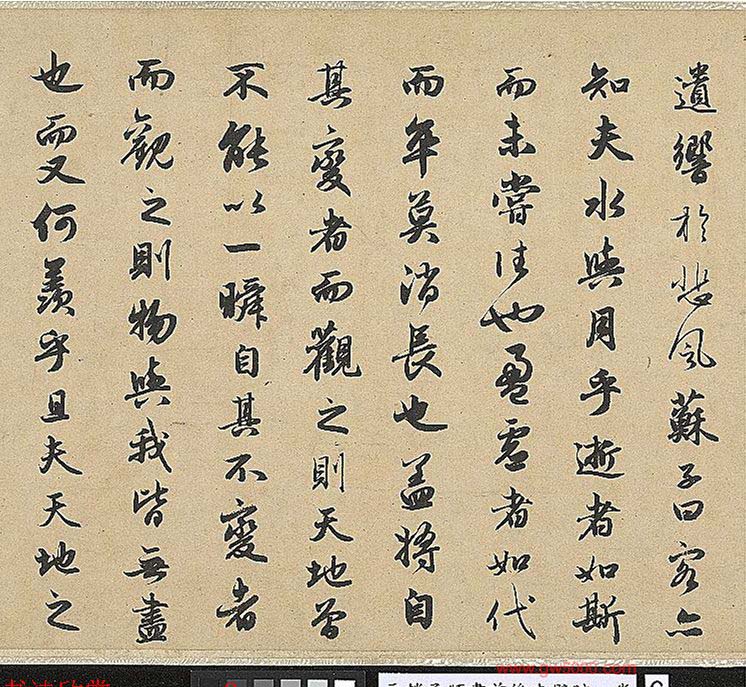 遺響於悲風蘇子曰客亦
知夫水與月乎逝者如斯
而未嘗往也盈虛者如代
而卒莫消長也蓋將自
其變者而觀之則天地曾
不能以一瞬自其不變者
而觀之則物與我皆無盡
也而又何羨乎且夫天地之